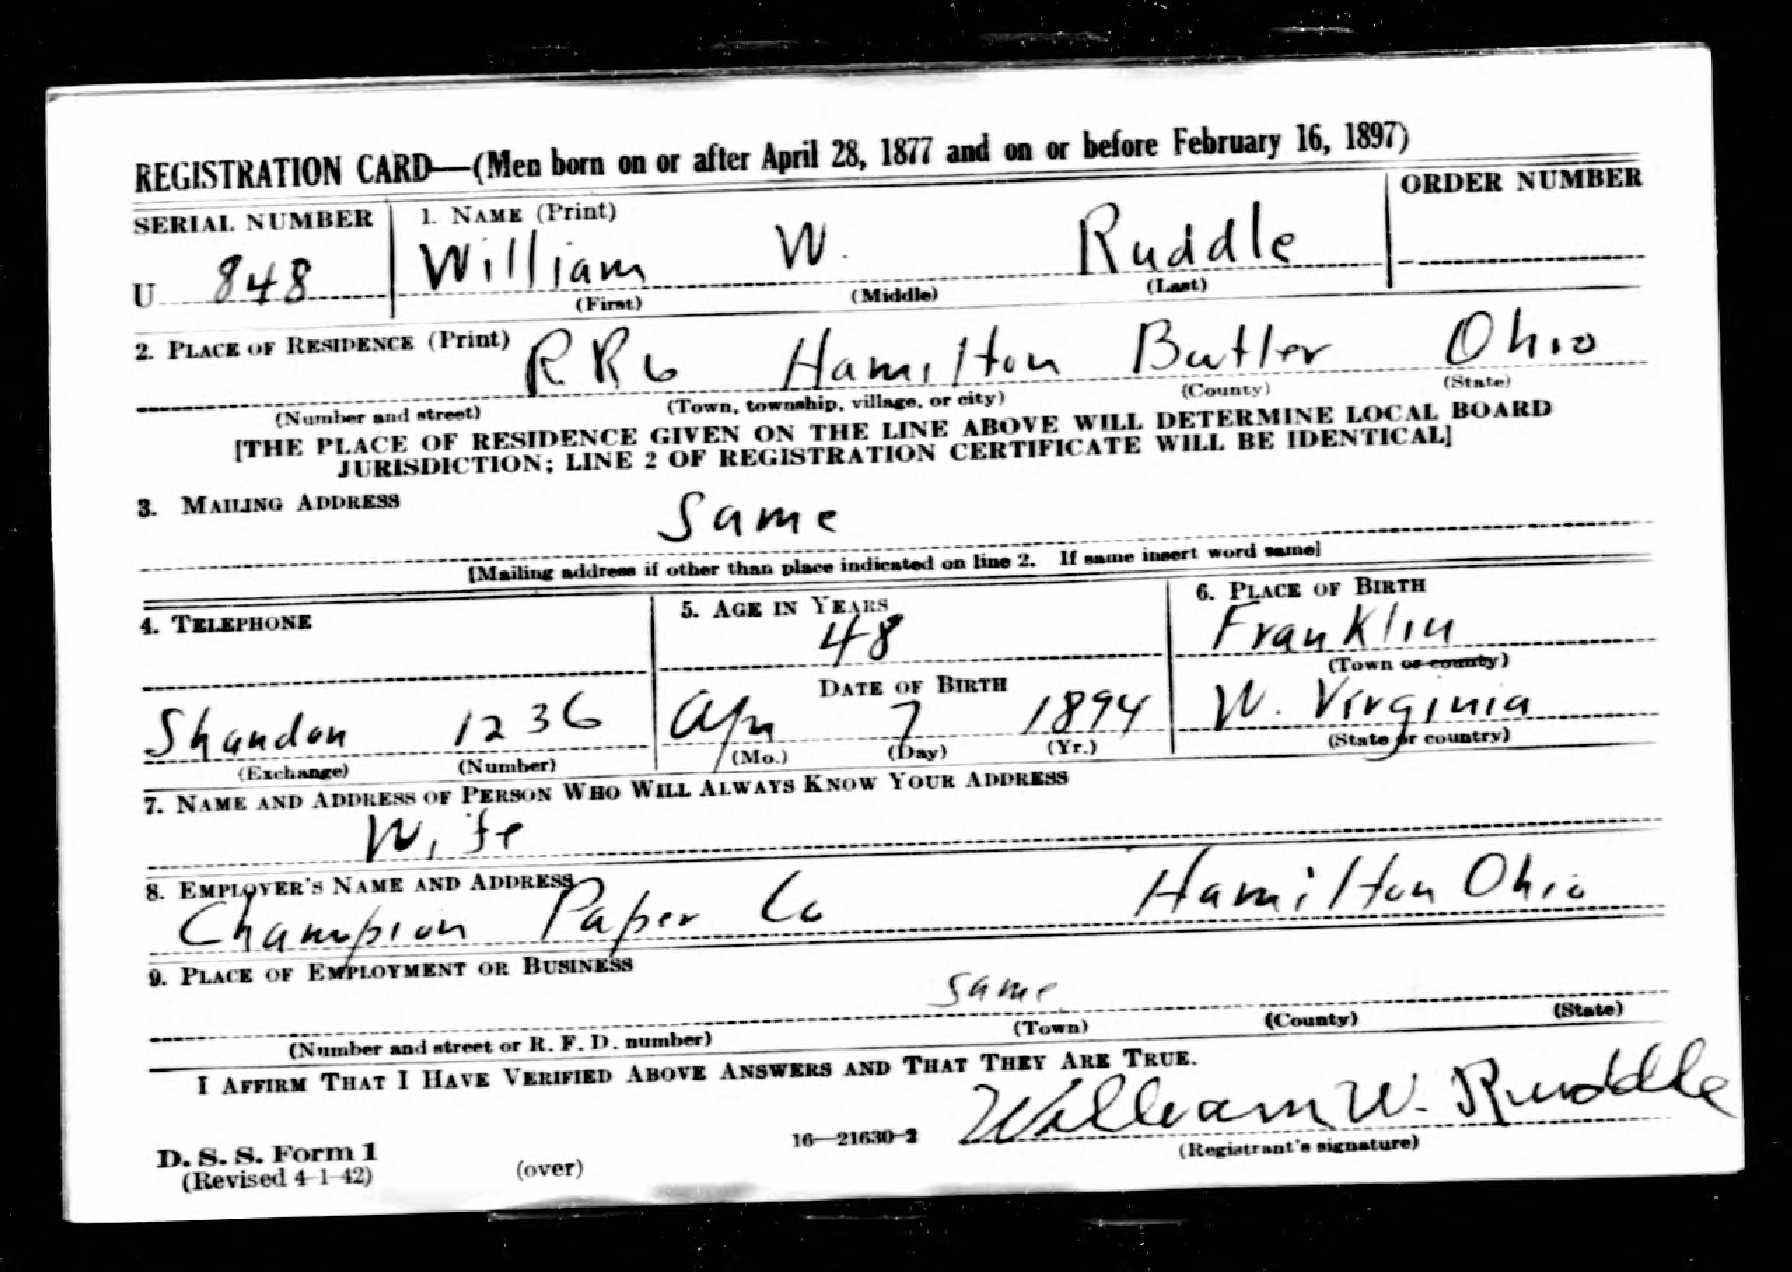 REGISTRATION CARD—(Men born on or after April 28, 1877 and on or before February 16, 1897)
SERIAL NUMBER 1. NAME (Print) ORDER NUMBER
U 848 William W. Ruddle
(First) (Middle) (Last)
2. PLACE OF RESIDENCE (Print)
RR6 Hamilton Butler Ohio
(Number and street) (Town, township, village, or city) (County) (State)
[THE PLACE OF RESIDENCE GIVEN ON THE LINE ABOVE WILL DETERMINE LOCAL BOARD
JURISDICTION; LINE 2 OF REGISTRATION CERTIFICATE WILL BE IDENTICAL]
3. MAILING ADDRESS
Same
[Mailing address if other than place indicated on line 2. If same insert word same]
4. TELEPHONE 5. AGE IN YEARS 6. PLACE OF BIRTH
48 Franklin
(Town or county)
DATE OF BIRTH
Shandon 1236 Apr 7 1894 W. Virginia
(Exchange) (Number) (Mo.) (Day) (Yr.) (State or country)
7. NAME AND ADDRESS OF PERSON WHO WILL ALWAYS KNOW YOUR ADDRESS
Wife
8. EMPLOYER'S NAME AND ADDRESS
Champion Paper Co Hamilton Ohio
9. PLACE OF EMPLOYMENT OR BUSINESS
same
(Number and street or R. F. D. number) (Town) (County) (State)
I AFFIRM THAT I HAVE VERIFIED ABOVE ANSWERS AND THAT THEY ARE TRUE.
William W. Ruddle
D. S. S. Form 1 16—21630-2 (Registrant's signature)
(Revised 4-1-42) (over)